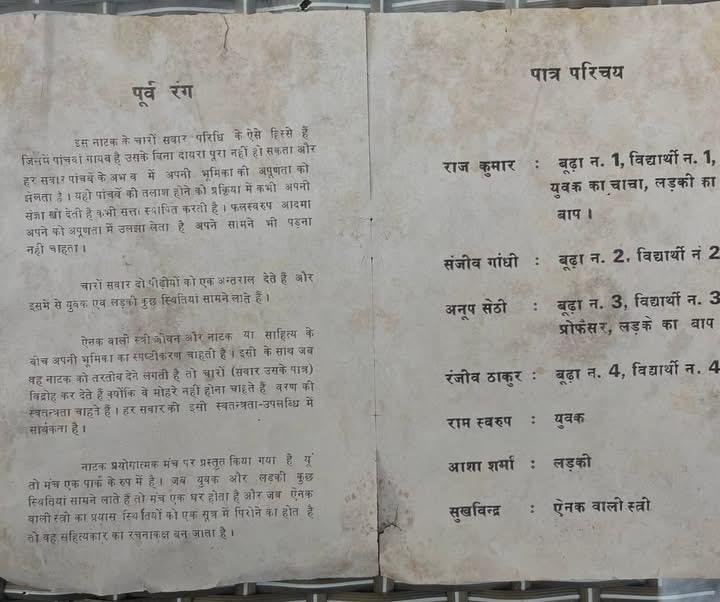 पूर्व रंग
इस नाटक के चारों सवार परिधि के ऐसे हिस्से हैं
जिनमें पांचवां गायब है उसके बिना दायरा पूरा नहीं हो सकता और
हर सवार पांचवें के अभाव में अपनी भूमिका की अपूणता को
झेलता है। यही पांचवें की तलाश होने की प्रक्रिया में कभी अपनी
संज्ञा खो देती है कभी सत्ता स्थापित करती है। फलस्वरुप आदमी
अपने को अपूणता में उलझा लेता है अपने सामने भी पड़ना
नहीं चाहता।
चारों सवार दो पीढ़ीयों को एक अन्तराल देते हैं और
इसमें से युवक एवं लड़की कुछ स्थितियां सामने लाते हैं।
ऐनक वाली स्त्री जीवन और नाटक या साहित्य के
बीच अपनी भूमिका का स्पष्टीकरण चाहती है। इसी के साथ जब
वह नाटक को तरतीब देने लगती है तो चारों (सवार उसके पात्र)
विद्रोह कर देते हैं क्योंकि वे मोहरे नहीं होना चाहते हैं वरण की
स्वतन्त्रता चाहते हैं। हर सवार की इसी स्वतन्त्रता-उपलब्धि में
सार्थकता है।
नाटक प्रयोगात्मक मंच पर प्रस्तुत किया गया है यूं
तो मंच एक पार्क के रुप में है। जब युवक और लड़की कुछ
स्थितियां सामने लाते हैं तो मंच एक घर होता है और जब ऐनक
वाली स्त्री का प्रयास स्थितियों को एक सूत्र में पिरोने का होता है
तो वह सहित्यकार का रचनाकक्ष बन जाता है।
पात्र परिचय
राज कुमार : बूढ़ा न. 1, विद्यार्थी न. 1,
युवक का चाचा, लड़की का
बाप।
संजीव गांधी : बूढ़ा न. 2, विद्यार्थी नं 2
अनूप सेठी : बूढ़ा न. 3, विद्यार्थी न. 3
प्रोफैसर, लड़के का बाप
रंजीव ठाकुर : बूढ़ा न. 4, विद्यार्थी न. 4
राम स्वरुप : युवक
आशा शर्मा : लड़की
सुखविन्द्र : ऐनक वाली स्त्री